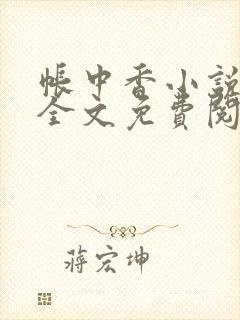 帳中香小説
全文免費閱
蔣宏坤